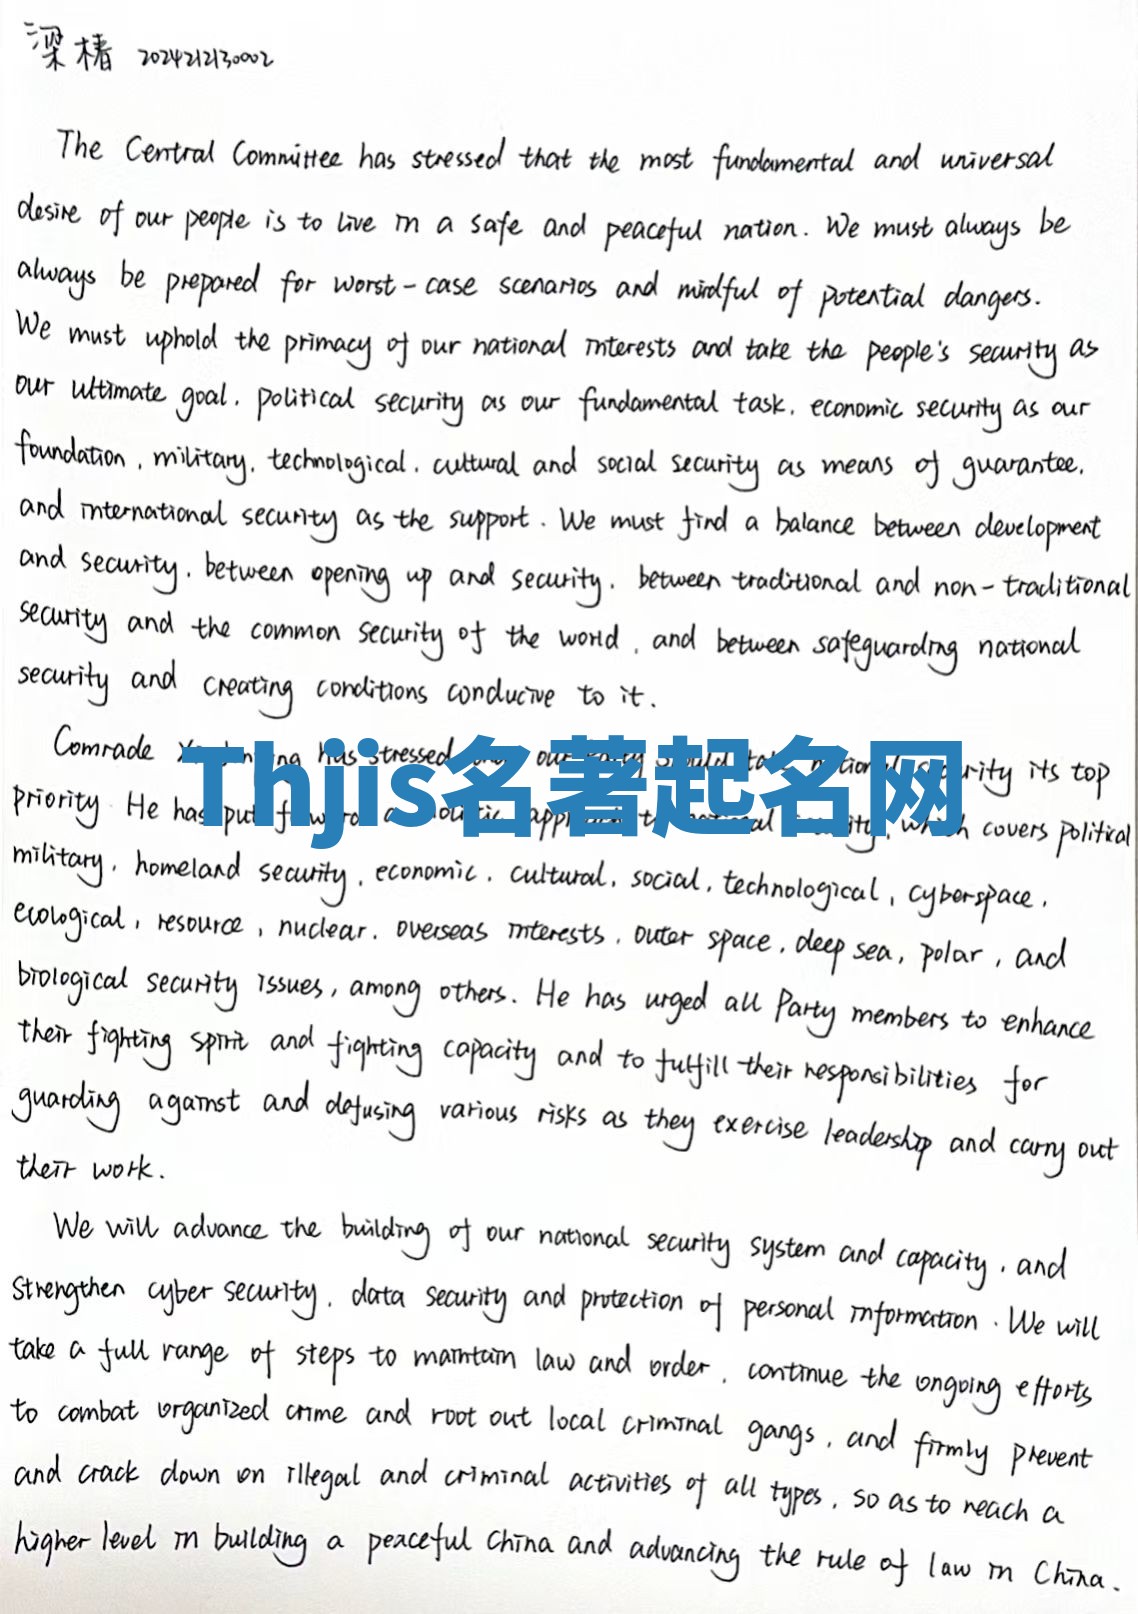 梁楮 2024212130002
The Central Committee has stressed that the most fundamental and universal
desire of our people is to live in a safe and peaceful nation. We must always be
always be prepared for worst-case scenarios and mindful of potential dangers.
We must uphold the primacy of our national interests and take the people's security as
our ultimate goal, political security as our fundamental task, economic security as our
foundation, military, technological, cultural and social security as means of guarantee,
and international security as the support. We must find a balance between development
and security, between opening up and security, between traditional and non-traditional
security and the common security of the world, and between safeguarding national
security and creating conditions conducive to it.
Comrade has stressed our national security its top
Thjis名著起名网
priority. He has put forward a holistic approach to national security, which covers political
military, homeland security, economic, cultural, social, technological, cyberspace,
ecological, resource, nuclear, overseas interests, outer space, deep sea, polar, and
biological security issues, among others. He has urged all Party members to enhance
their fighting spirit and fighting capacity and to fulfill their responsibilities for
guarding against and defusing various risks as they exercise leadership and carry out
their work.
We will advance the building of our national security system and capacity, and
strengthen cyber security, data security and protection of personal information. We will
take a full range of steps to maintain law and order, continue the ongoing efforts
to combat organized crime and root out local criminal gangs, and firmly prevent
and crack down on illegal and criminal activities of all types, so as to reach a
higher level in building a peaceful China and advancing the rule of law in China.